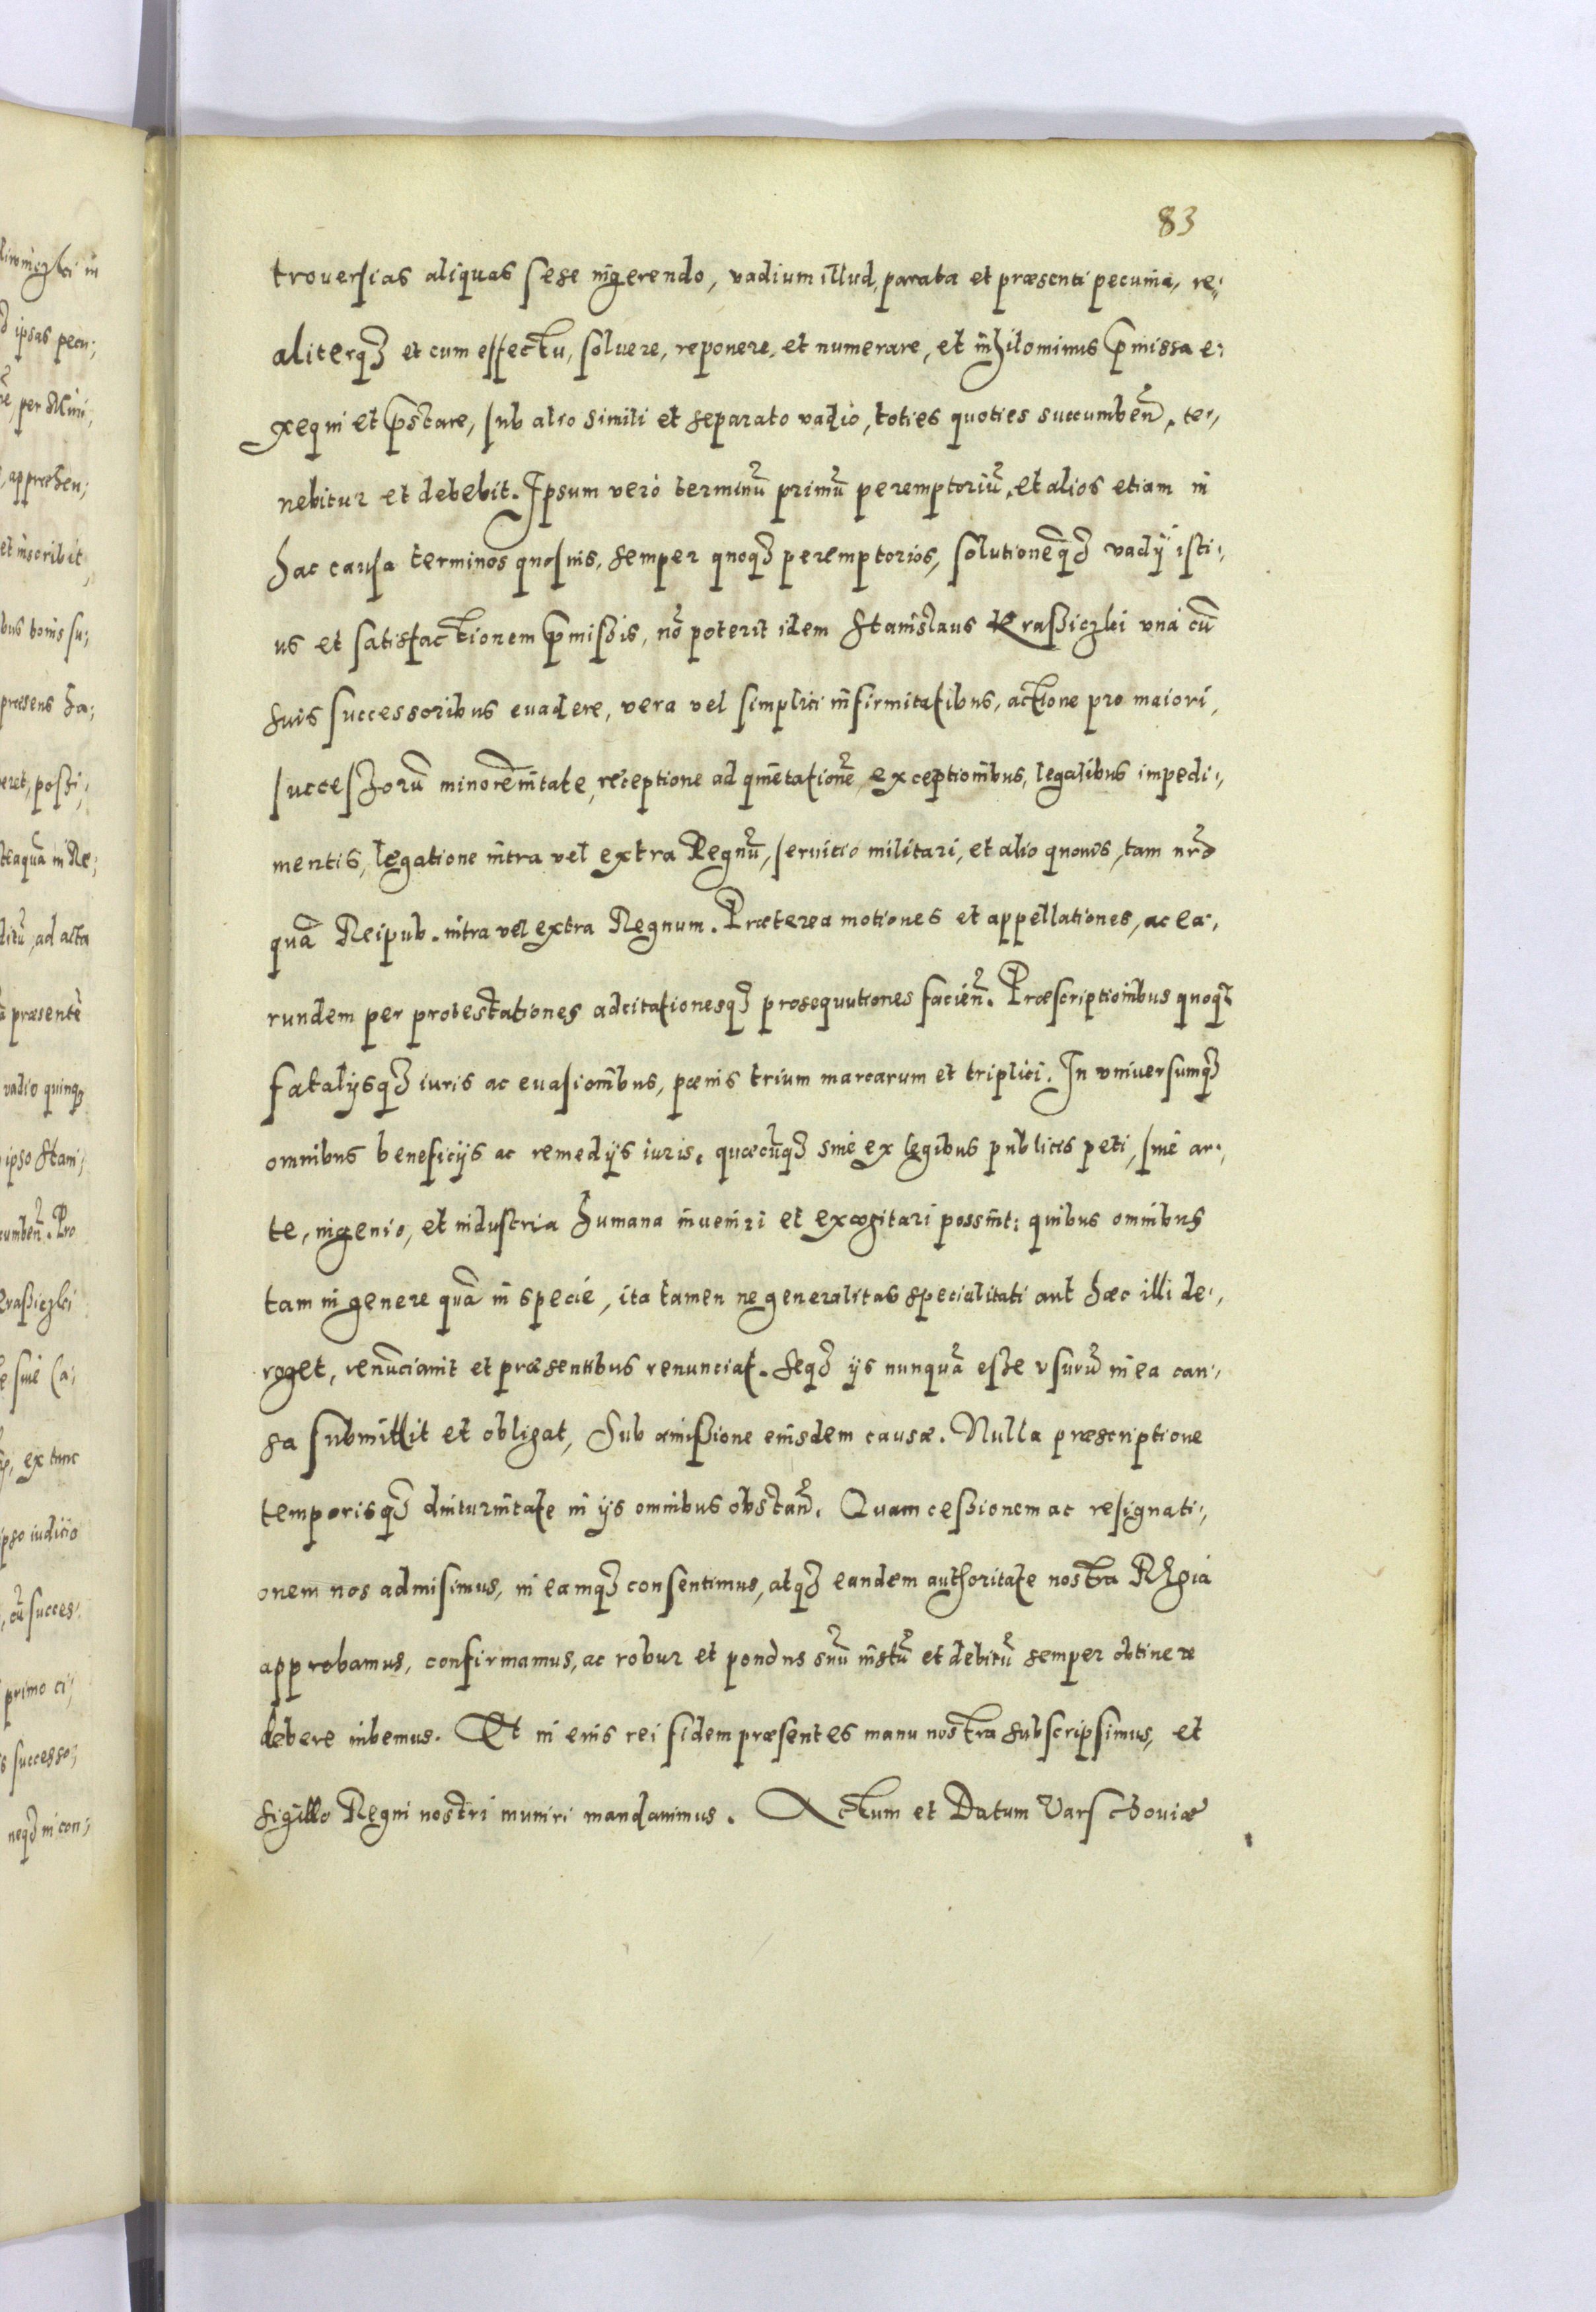 83
troversias aliquas sese ingerendo, vadium illud, parata et præsenti pecunia, re,
aliterqꝫ et cum effectu, soluere, reponere, et numerare, et nihilominus p̃missa e,
xequi et p̃stare, sub alio simili et separato vadio, toties quoties succumbeñ, te,
nebitur et debebit. Ipsum vero terminũ primũ peremptoriũ, et alios etiam in
hac causa terminos quosuis, semper quoqꝫ peremptorios, solutionẽqꝫ vadÿ isti,
us et satisfactionem p̃mißis, nõ poterit idem Stanislaus Kraßiczki vna cũ
suis successoribus euadere, vera vel simplici infirmitatibus, actione pro maiori,
successorũ minorẽnitate, receptione ad qmẽtationẽ, exceptionibus, legalibus impedi,
mentis, legatione intra vel extra Regnũ, seruitio militari, et alio quouis, tam nr̃o
quã Reipub. intra vel extra Regnum. Præterea motiones et appellationes, ac ea,
rundem per protestationes adcitationesqꝫ prosequutiones facieñ. Præscriptionibus quoqꝫ
fatalÿsqꝫ iuris ac euasionibus, pœnis trium marcarum et triplici. In vniuersumqꝫ
omnibus beneficÿs ac remedÿs iuris, quæcũqꝫ siue ex legibus publicis peti, siue ar,
te, ingenio, et industria humana inueniri et excogitari possint: quibus omnibus
tam in genere quã in specie, ita tamen ne generalitas specialitati aut hæc illi de,
roget, renũciauit et præsentibus renunciat. Seqꝫ ÿs nunquã esse vsurũ in ea cau,
sa submittit et obligat, sub amißione eiusdem causæ. Nulla præscriptione
temporisqꝫ diuturnitate in ÿs omnibus obstañ. Quam ceßionem ac resignati,
onem nos admisimus, in eamqꝫ consentimus, atqꝫ eandem authoritate nostra Regia
approbamus, confirmamus, ac robur et pondus suũ iustũ et debitũ semper obtinere
debere iubemus. Et in eius rei fidem præsentes manu nostra subscripsimus, et
sigillo Regni nostri muniri mandauimus. Actum et Datum Varschouiæ